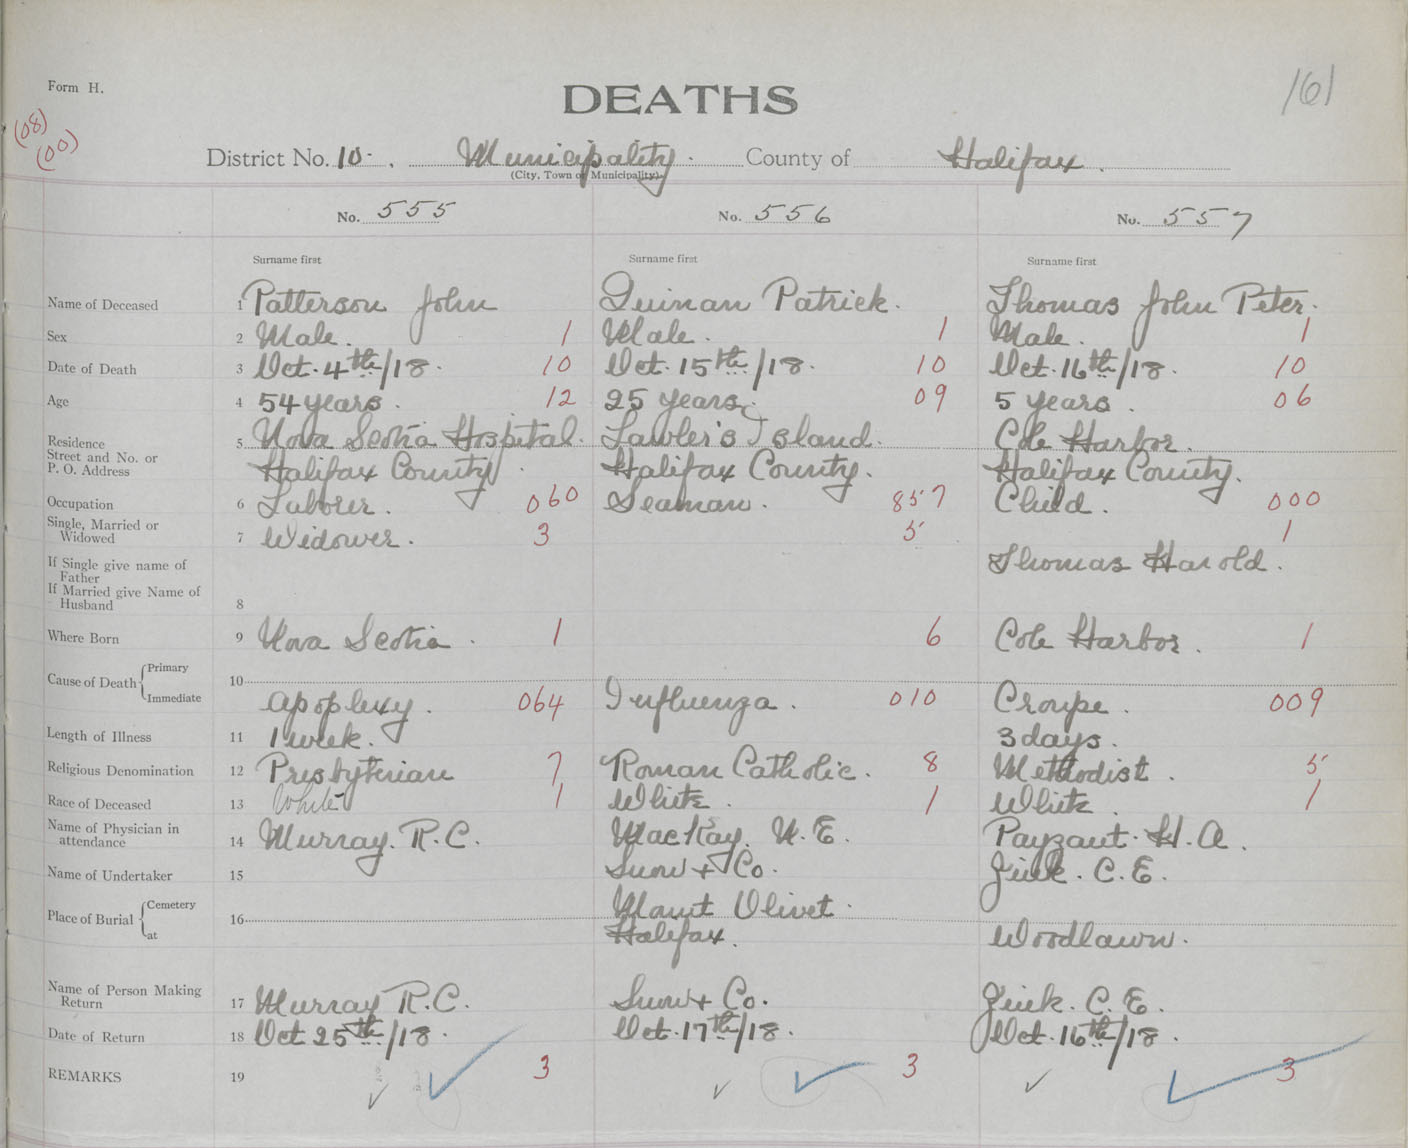 Form H.
DEATHS
161
(08)
(00)
District No. 10. Municipality. County of Halifax.
(City, Town or Municipality)
No. 555 No. 556 No. 557
Surname first Surname first Surname first
Name of Deceased 1 Patterson John Quinan Patrick. Thomas John Peter.
Sex 2 Male. 1 Male. 1 Male. 1
Date of Death 3 Oct. 4th/18. 10 Oct. 15th/18. 10 Oct. 16th/18. 10
Age 4 54 years. 12 25 years. 09 5 years. 06
Residence 5 Nova Scotia Hospital. Lawler's Island. Cole Harbor.
Street and No. or
P. O. Address Halifax County. Halifax County. Halifax County.
Occupation 6 Laborer. 060 Seaman. 857 Child. 000
Single, Married or
Widowed 7 Widower. 3 5 1
If Single give name of
Father Thomas Harold.
If Married give Name of
Husband 8
Where Born 9 Nova Scotia. 1 6 Cole Harbor. 1
Cause of Death Primary 10
Immediate Apoplexy. 064 Influenza. 010 Croupe. 009
Length of Illness 11 1 week. 3 days.
Religious Denomination 12 Presbyterian 7 Roman Catholic. 8 Methodist. 5
Race of Deceased 13 White 1 White. 1 White. 1
Name of Physician in
attendance 14 Murray. R.C. MacKay. N.E. Payzant. H.A.
Name of Undertaker 15 Snow & Co. Zink. C.E.
Place of Burial Cemetery 16 Mount Olivet.
at Halifax. Woodlawn.
Name of Person Making
Return 17 Murray R.C. Snow & Co. Zink. C.E.
Date of Return 18 Oct 25th/18. Oct. 17th/18. Oct. 16th/18.
REMARKS 19 3 3 3